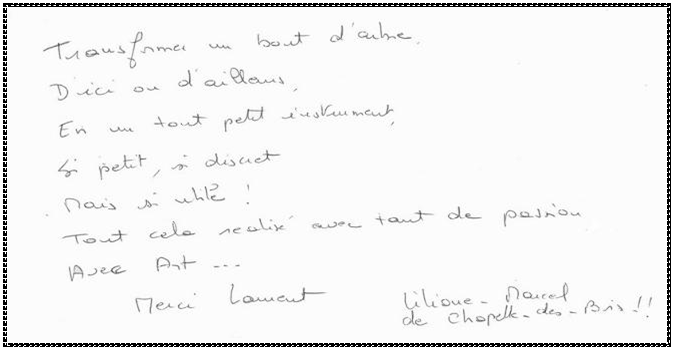 Transformer un bout d'arbre,
D'ici ou d'ailleurs,
En un tout petit instrument,
Si petit, si discret
Mais si utile !
Tout cela réalisé avec tant de passion
Avec Art ...
Merci Laurent
Liliane - Marcel
de Chapelle-des-Bois !!